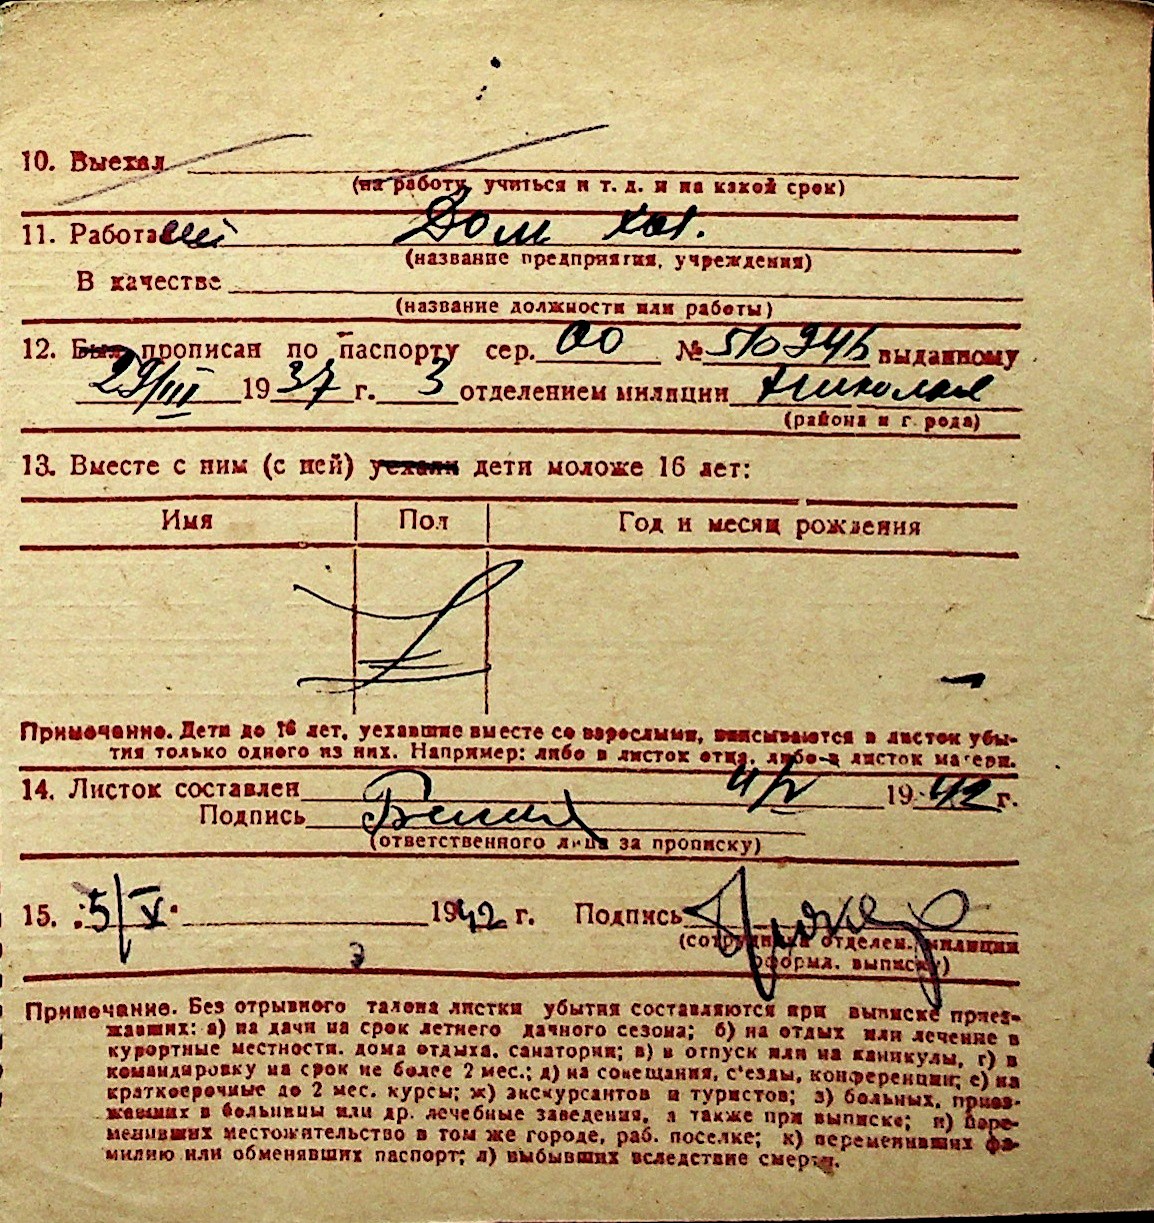 10. Выехал
(на работу, учиться и т. д. и на какой срок)
11. Работа Дом хоз.
(название предприятия, учреждения)
В качестве
(название должности или работы)
12. Был прописан по паспорту сер. №  выданному
29/III 1937 г. 3 отделением милиции
(района и города)
13. Вместе с ним (с ней) уехали дети моложе 16 лет:
Имя Пол Год и месяц рождения
Примечание. Дети до 16 лет, уехавшие вместе со взрослыми, вписываются в листок убы-
тия только одного из них. Например: либо в листок отца, либо в листок матери.
14. Листок составлен 4/V 1942 г.
Подпись
(ответственного лица за прописку)
15. „5/V" 1942 г. Подпись
(сотрудника отделен. милиции
оформл. выписку)
Примечание. Без отрывного талона листки убытия составляются при выписке приез-
жавших: а) на дачи на срок летнего дачного сезона; б) на отдых или лечение в
курортные местности, дома отдыха, санатории; в) в отпуск или на каникулы, г) в
командировку на срок не более 2 мес.; д) на совещания, с'езды, конференции; е) на
краткосрочные до 2 мес. курсы; ж) экскурсантов и туристов; з) больных, приез-
жавших в больницы или др. лечебные заведения, а также при выписке; и) пере-
менивших местожительство в том же городе, раб. поселке; к) переменивших фа-
милию или обменявших паспорт; л) выбывших вследствие смерти.